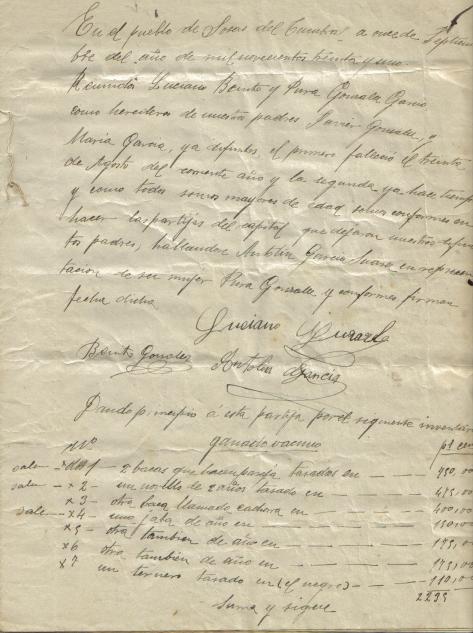 En el pueblo de Sosas del Cumbral a once de Septiem
bre del año de mil novecientos treinta y uno.
Reunidos Luciano Benito y Pura Gonzalez Garcia
como herederos de nuestros padres Javier Gonzalez, y
Maria Garcia, ya difuntos, el primero fallecio el treinta
de Agosto del corriente año y la segunda ya hace tiempo
y como todos somos mayores de edad somos conformes en
hacer las partijas del capital que dejaron nuestros difun
tos padres, hallandose Antolin Garcia Suarez en represen
tacion de su mujer Pura Gonzalez y conformes firman
fecha dicha
Luciano Gonzalez
Benito Gonzalez Antolin Garcia
Dando principio á esta partija por el siguiente inventario
Nº ganado vacuno pt cen
sale x 1 - 2 bacas que hacen pareja tasadas en 950,00
sale x 2 - un novillo de 2 años tasado en 475,00
x 3 - otra baca llamada en 400,00
sale x 4 - una jata de año en 150,00
x 5 - otra tambien de año en 175,00
x 6 otra tambien de año en 175,00
x 7 un ternero tasado en (el negro) 110,00
2235
Suma y sigue